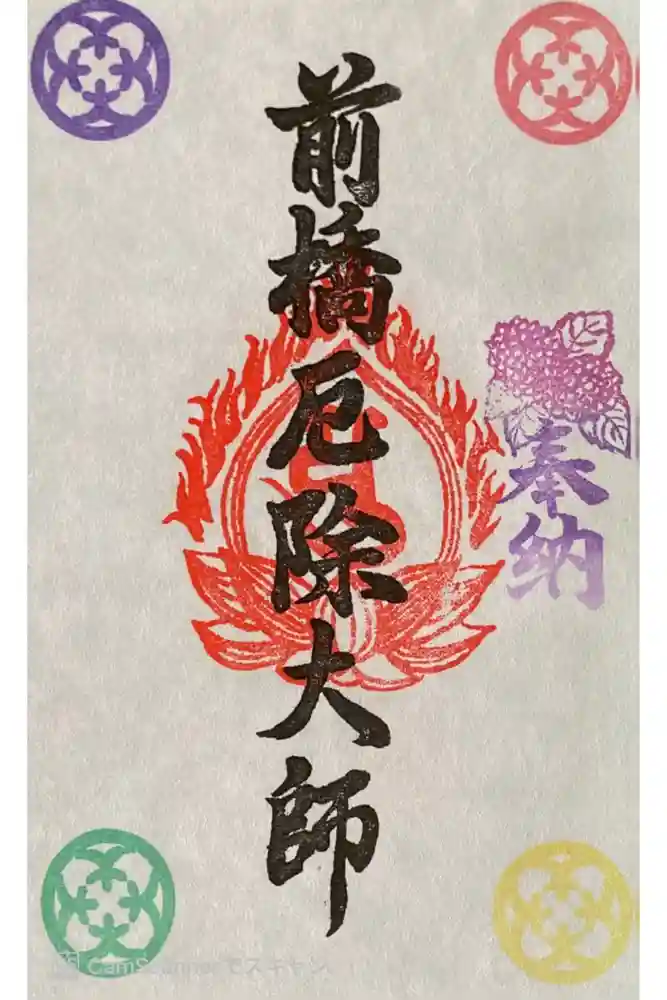 奉納
前橋厄除大師
CamScannerでスキャン